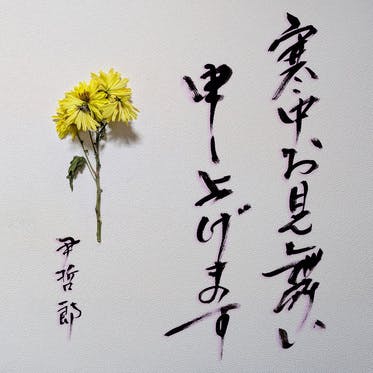 寒中お見舞い
申し上げます
尹哲郎